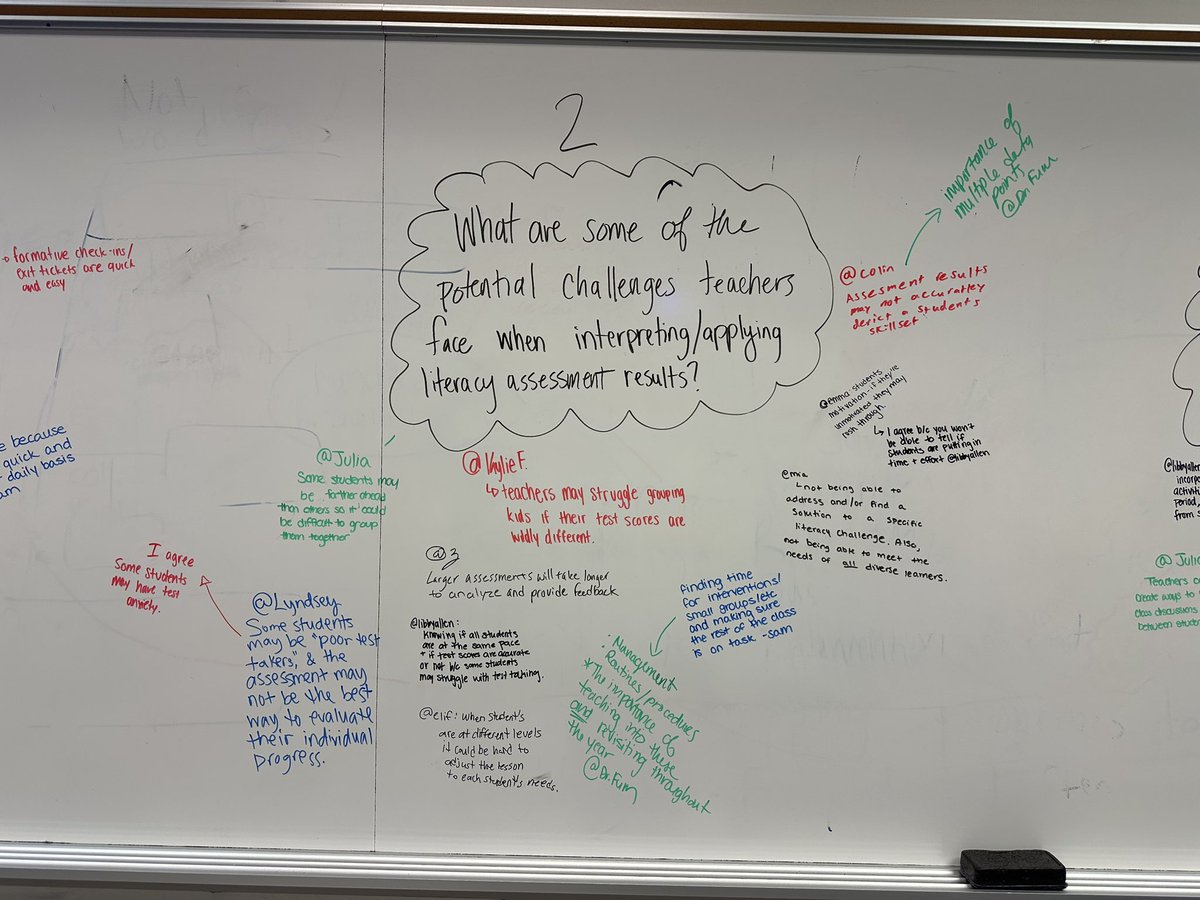 2
What are some of the
potential challenges teachers
face when interpreting/applying
literacy assessment results?
importance of
multiple data
points
@Dr. Fum
@colin
Assesment results
may not accuratley
derict a students
skillset
@emma: students
motivation - if they're
unmotivated they may
rush through.
↳ I agree b/c you won't
be able to tell if
students are putting in
time + effort @libbyallen
@mia
↳ not being able to
address and/or find a
solution to a specific
literacy challenge. Also,
not being able to meet the
needs of all diverse learners.
formative check-ins/
exit tickets are quick
and easy
e because
quick and
daily basis
am
@Julia
Some students may
be farther ahead
than others so it could
be difficult to group
them together
@Kylie F.
↳ teachers may struggle grouping
kids if their test scores are
wildly different.
@3
Larger assessments will take longer
to analyze and provide feedback
@libbyallen:
knowing if all students
are at the same pace
+ if test scores are accurate
or not b/c some students
may struggle with test taking.
@elif: when student's
are at different levels
it could be hard to
adjust the lesson
to each student's needs.
I agree
Some students
may have test
anxiety.
@Lyndsey
Some students
may be "poor test
takers," & the
assessment may
not be the best
way to evaluate
their individual
progress.
finding time
for interventions/
small groups/etc
and making sure
the rest of the class
is on task -sam
: Management
: Routines/procedures
*The importance of
teaching into these
and revisiting throughout
the year
@Dr. Fum
@libbyallen
incorp
activiti
period,
from s
@Julia
Teachers c
create ways to
class discussions
between studen